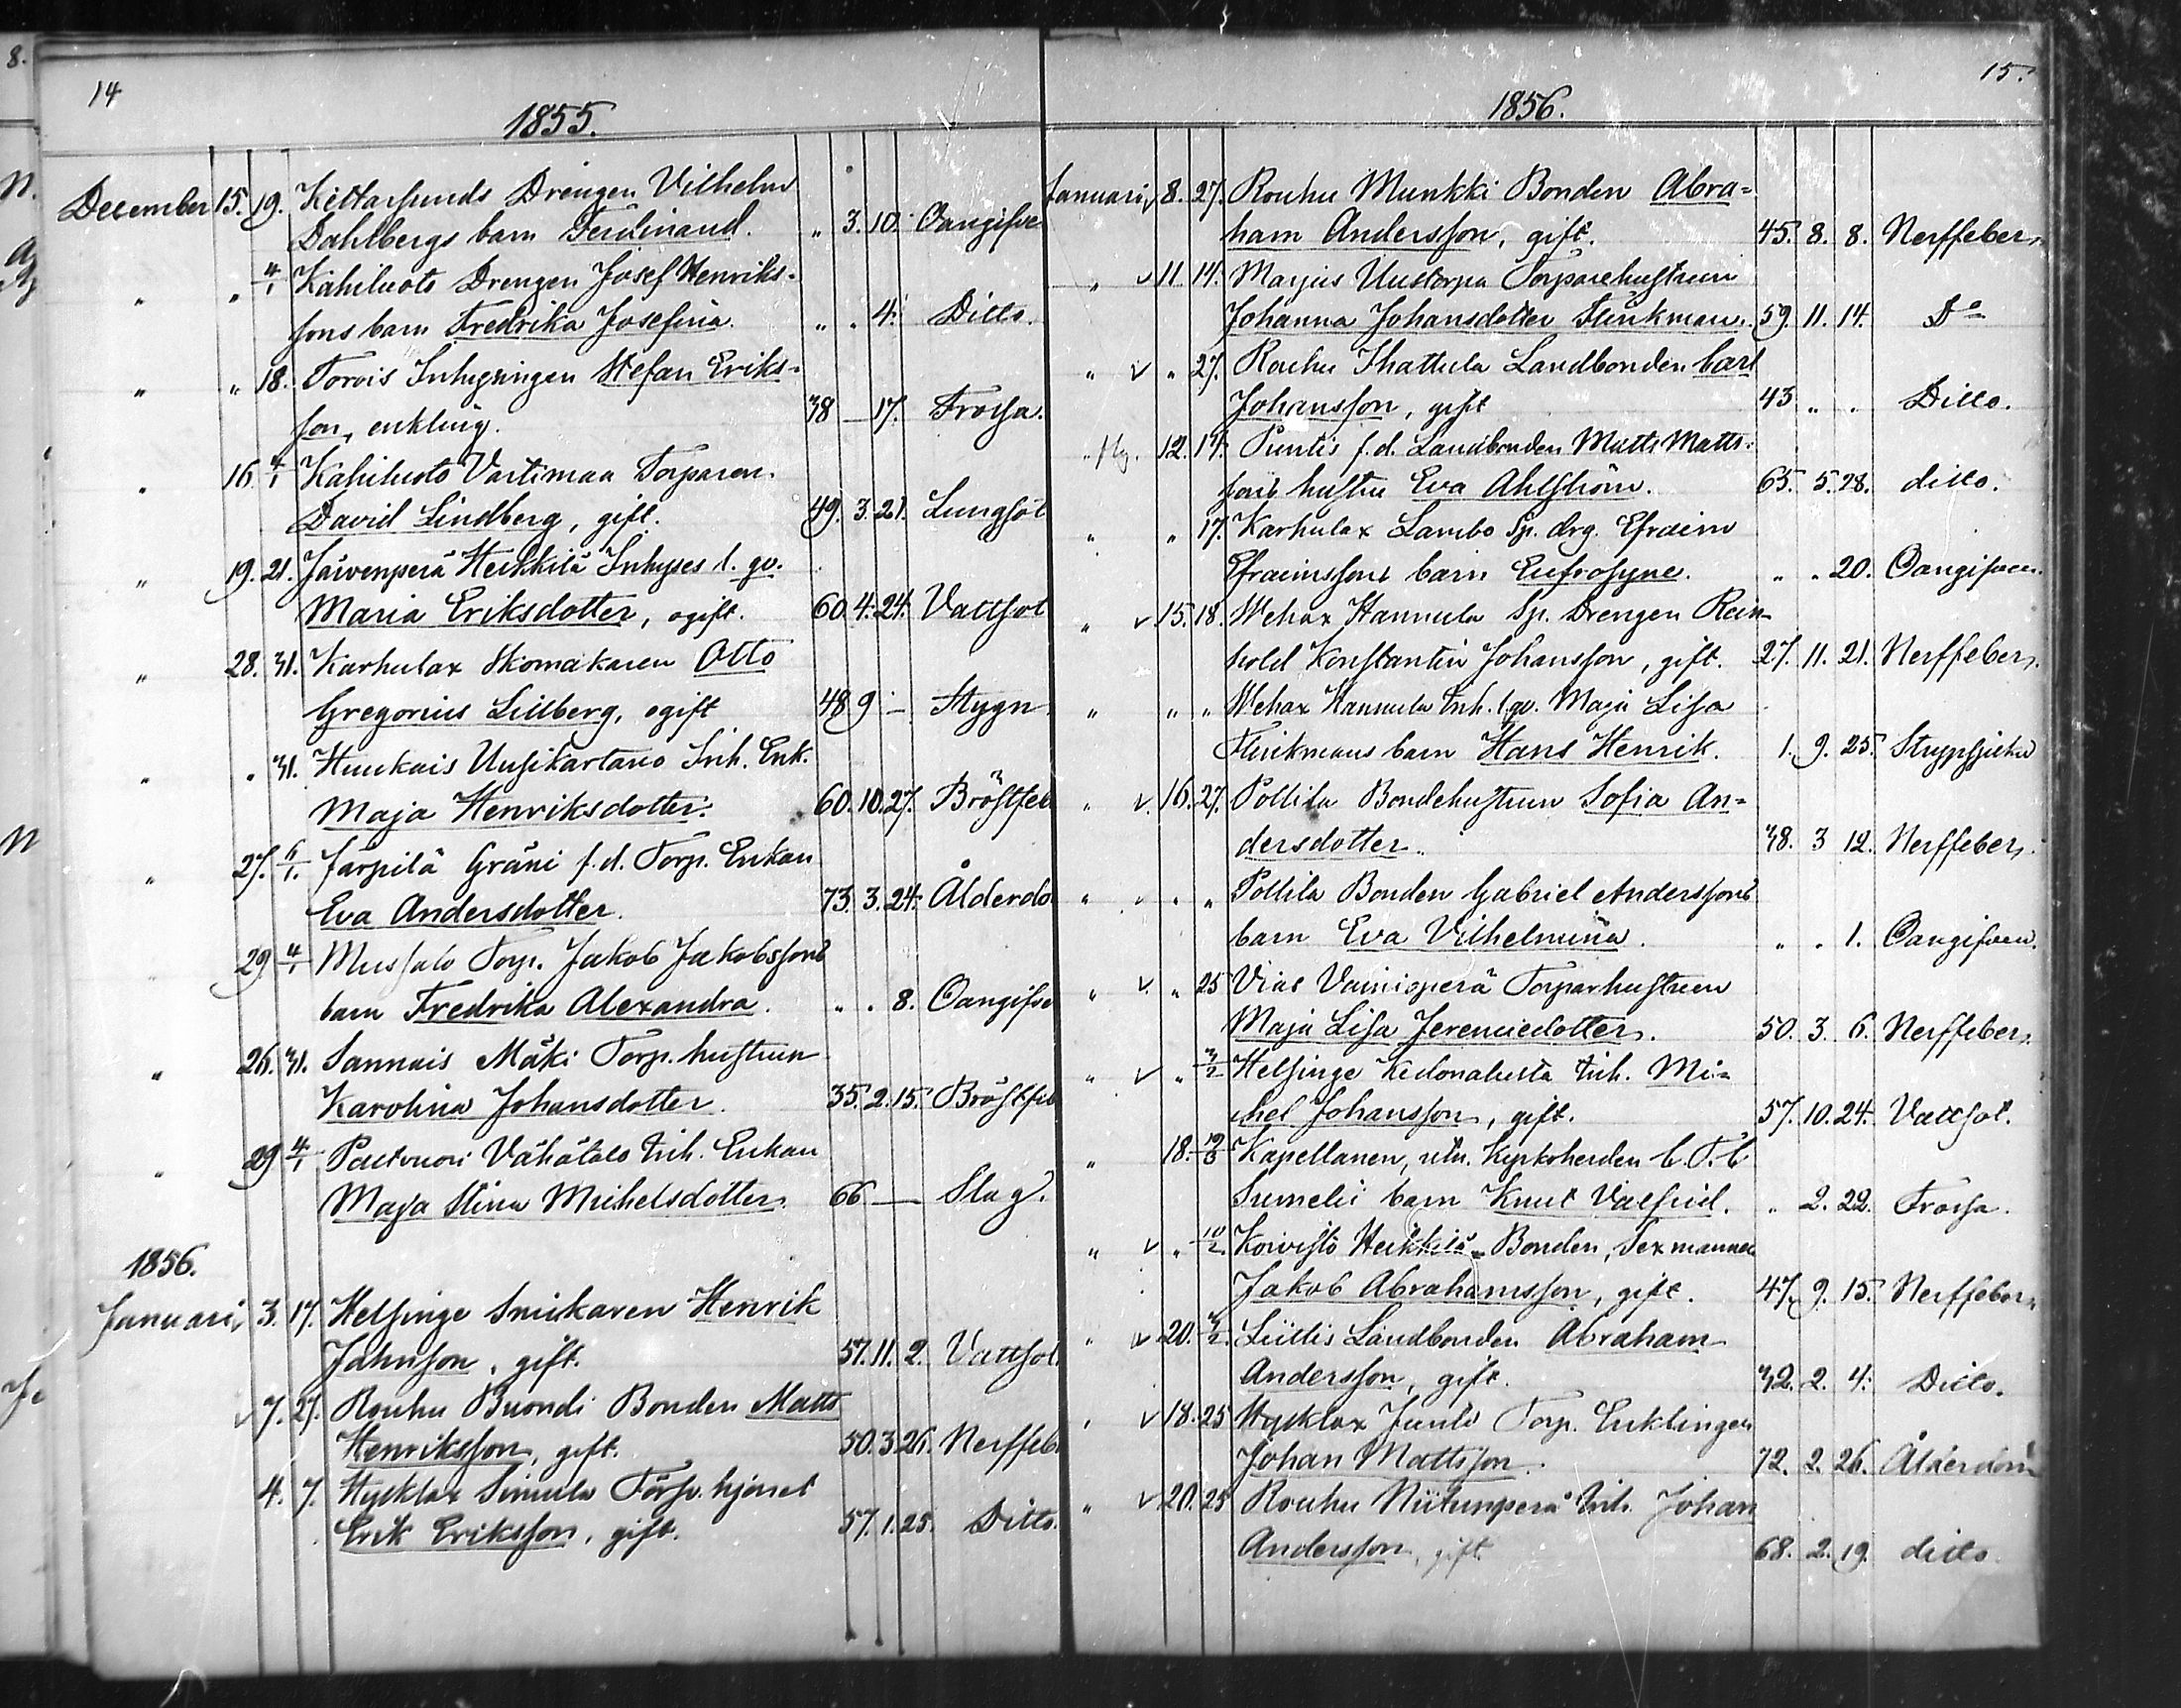 14
1855.
December 15. 19. Kettarsunds Drengen Vilhelm
Dahlbergs barn Ferdinand. " 3. 10. Oangifve
" " 4/1 Kahiluoto Drengen Josef Henriks-
sons barn Fredrika Josefina. " " 4. Ditto.
" " 18. Torvis Inhysingen Stefan Eriks-
son, enkling. 38 — 17. Frossa.
" 16. 4/1 Kahiluoto Vartimaa Torparen
David Lindberg, gift. 49. 3. 21. Lungsot
" 19. 21. Järvenperä Heikkilä Inhyses l. qv.
Maria Eriksdotter, ogift. 60. 4. 24. Vattsot
" 28. 31. Karhulax Skomakaren Otto
Gregorius Lillberg, ogift 48 9 — Stygn
" " 31. Huukais Uusikartano Inh. Enk.
Maja Henriksdotter. 60. 10. 27. Bröstfeb
" 27. 6/1. Järpilä Gräni f.d. Torp. Enkan
Eva Andersdotter. 73. 3. 24. Ålderdo
" 29 4/1 Mussalo Torp. Jakob Jakobssons
barn Fredrika Alexandra. " " 8. Oangifve
" 26. 31. Sannais Mäki Torp. hustrun
Karolina Johansdotter. 35. 2. 15. Bröstfeb
" 29 4/1 Vähätalo Inh. Enkan
Maja Stina Michelsdotter. 66 — Slag.
1856.
Januari, 3. 17. Helsinge Snickaren Henrik
Johnsson, gift. 57. 11. 2. Vattsot.
v 7. 27. Rouhu Buondi Bonden Matts
Henriksson, gift. 50. 3. 26. Nerffeb
4. 7. Hycklax Simula Förp. hjonet
Erik Eriksson, gift. 57. 1. 25. Ditto.
15.
1856.
Januari, 8. 27. Rouhu Munkki Bonden Abra-
ham Andersson, gift. 45. 8. 8. Nerffeber,
" v 11. 14. Marjus Uustorpa Torparehustrun
Johanna Johansdotter Flinkman. 59. 11. 14. Do
" v " 27. Rouhu Ihattula Landbonden Carl
Johansson, gift 43 " " Ditto.
" 12. 14. Puntis f.d. Landbonden Matts Matts-
sons hustru Eva Ahlström. 65. 5. 28. ditto.
" " 17. Karhulax Lambo Sp. drg. Efraim
Efraimssons barn Eufrosyne. " " 20. Oangifven.
" v 15. 18. Wehax Hannula Sp. Drengen Rein-
hold Konstantin Johansson, gift. 27. 11. 21. Nerffeber,
" " " Wehax Hannula Inh. l. qv. Maja Lisa
Flinkmans barn Hans Henrik. 1. 9. 25. Strypsjuka
" v. 16. 27. Pollila Bondehustrun Sofia An-
dersdotter. 38. 3 12. Nerffeber,
" " " " Pollila Bonden Gabriel Anderssons
barn Eva Vilhelmina. " " 1. Oangifven.
" v. " 25 Vias Vainionperä Torparhustrun
Maja Lisa Jeremiedotter. 50. 3. 6. Nerffeber,
" v " 3/2 Helsinge Kedonalusta Inh. Mi-
chel Johansson, gift. 57. 10. 24. Vattsot.
" 18. Kapellanen, utn. Kyrkoherden C. T. C
Sumelii barn Knut Valfrid. " 2. 22. Frossa.
" v " 10/2. Koivisto Heikkilä Bonden, Sexmannen
Jakob Abrahamsson, gift. 47. 9. 15. Nerffeber,
" v 20. 3/2. Liillis Landbonden Abraham
Andersson, gift. 32. 2. 4. Ditto.
" v 18. 25 Hycklax Juulo Torp. Enklingen
Johan Mattsson. 72. 2. 26. Ålderdom
" v 20. 25 Rouhu Niitunperä Inh. Johan
Andersson, gift. 68. 2. 19. ditto